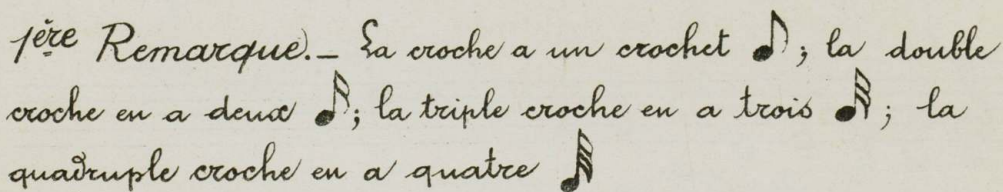 1ère Remarque).— La croche a un crochet 𝅘𝅥𝅮 ; la double
croche en a deux 𝅘𝅥𝅯 ; la triple croche en a trois 𝅘𝅥𝅰 ; la
quadruple croche en a quatre 𝅘𝅥𝅱